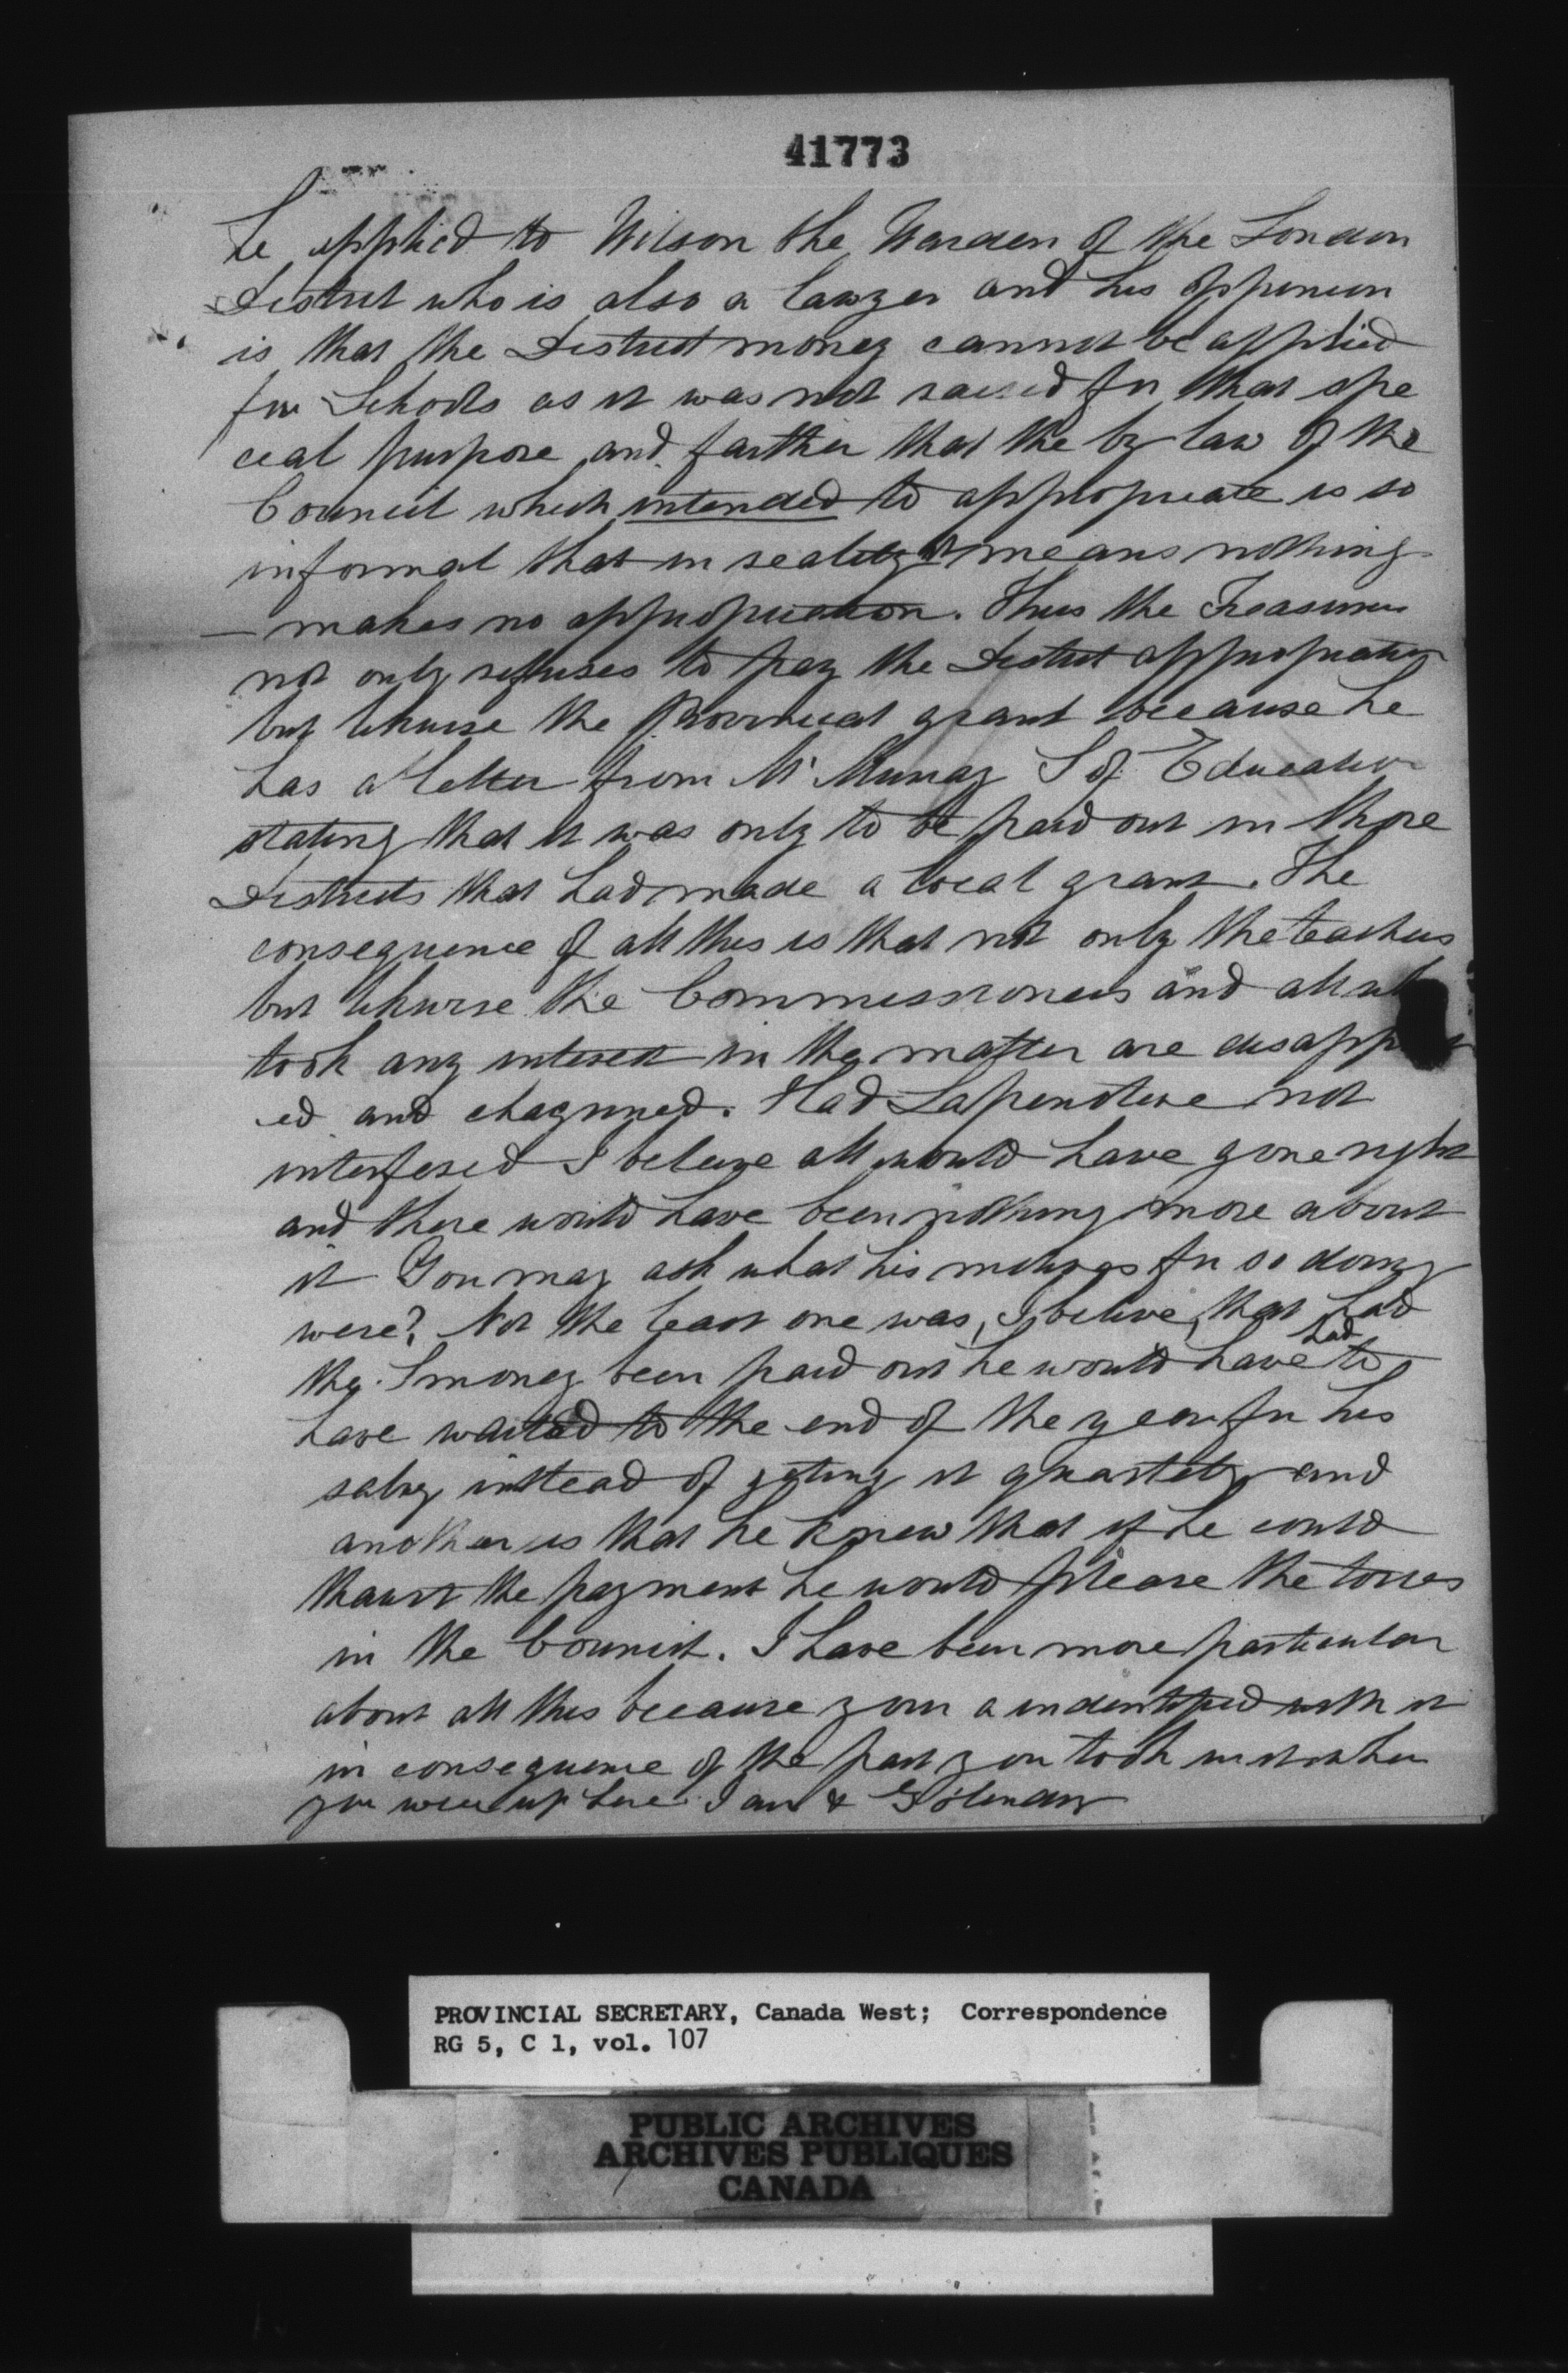 41773
he applied to Wilson the Warden of the London
District who is also a lawyer and his oppinion
is that the District money cannot be applied
for Schools as it was not raised for that spe
cial purpose and farther that the by law of the
Council which intended to appropriate is so
informal that in reality it means nothing
— makes no appropriation. Thus the Treasurer
not only refuses to pay the District appropriation
but likwise the Provincial grant because he
has a letter from Mr Murray S of Education
stating that it was only to be paid out in those
Districts that had made a local grant. The
consequence of all this is that not only the teachers
but likwise the Commissioners and all
took any interest in the matter are disapp
ed and chagrined. Had Lapenotiere not
interfered I beleive all would have gone right
and there would have been nothing more about
it You may ask what his motives for so doing
were? Not the least one was, I beleive, that had
the S money been paid out he would have had to
have waited to the end of the year for his
salry instead of geting it quarterly and
another is that he knew that if he could
thawrt the payment he would please the tories
in the Council. I have been more particular
about all this because your a indentified with it
in consequence of the part you took in it when
you were up here I am &
PROVINCIAL SECRETARY, Canada West; Correspondence
RG 5, C 1, vol. 107
PUBLIC ARCHIVES
ARCHIVES PUBLIQUES
CANADA